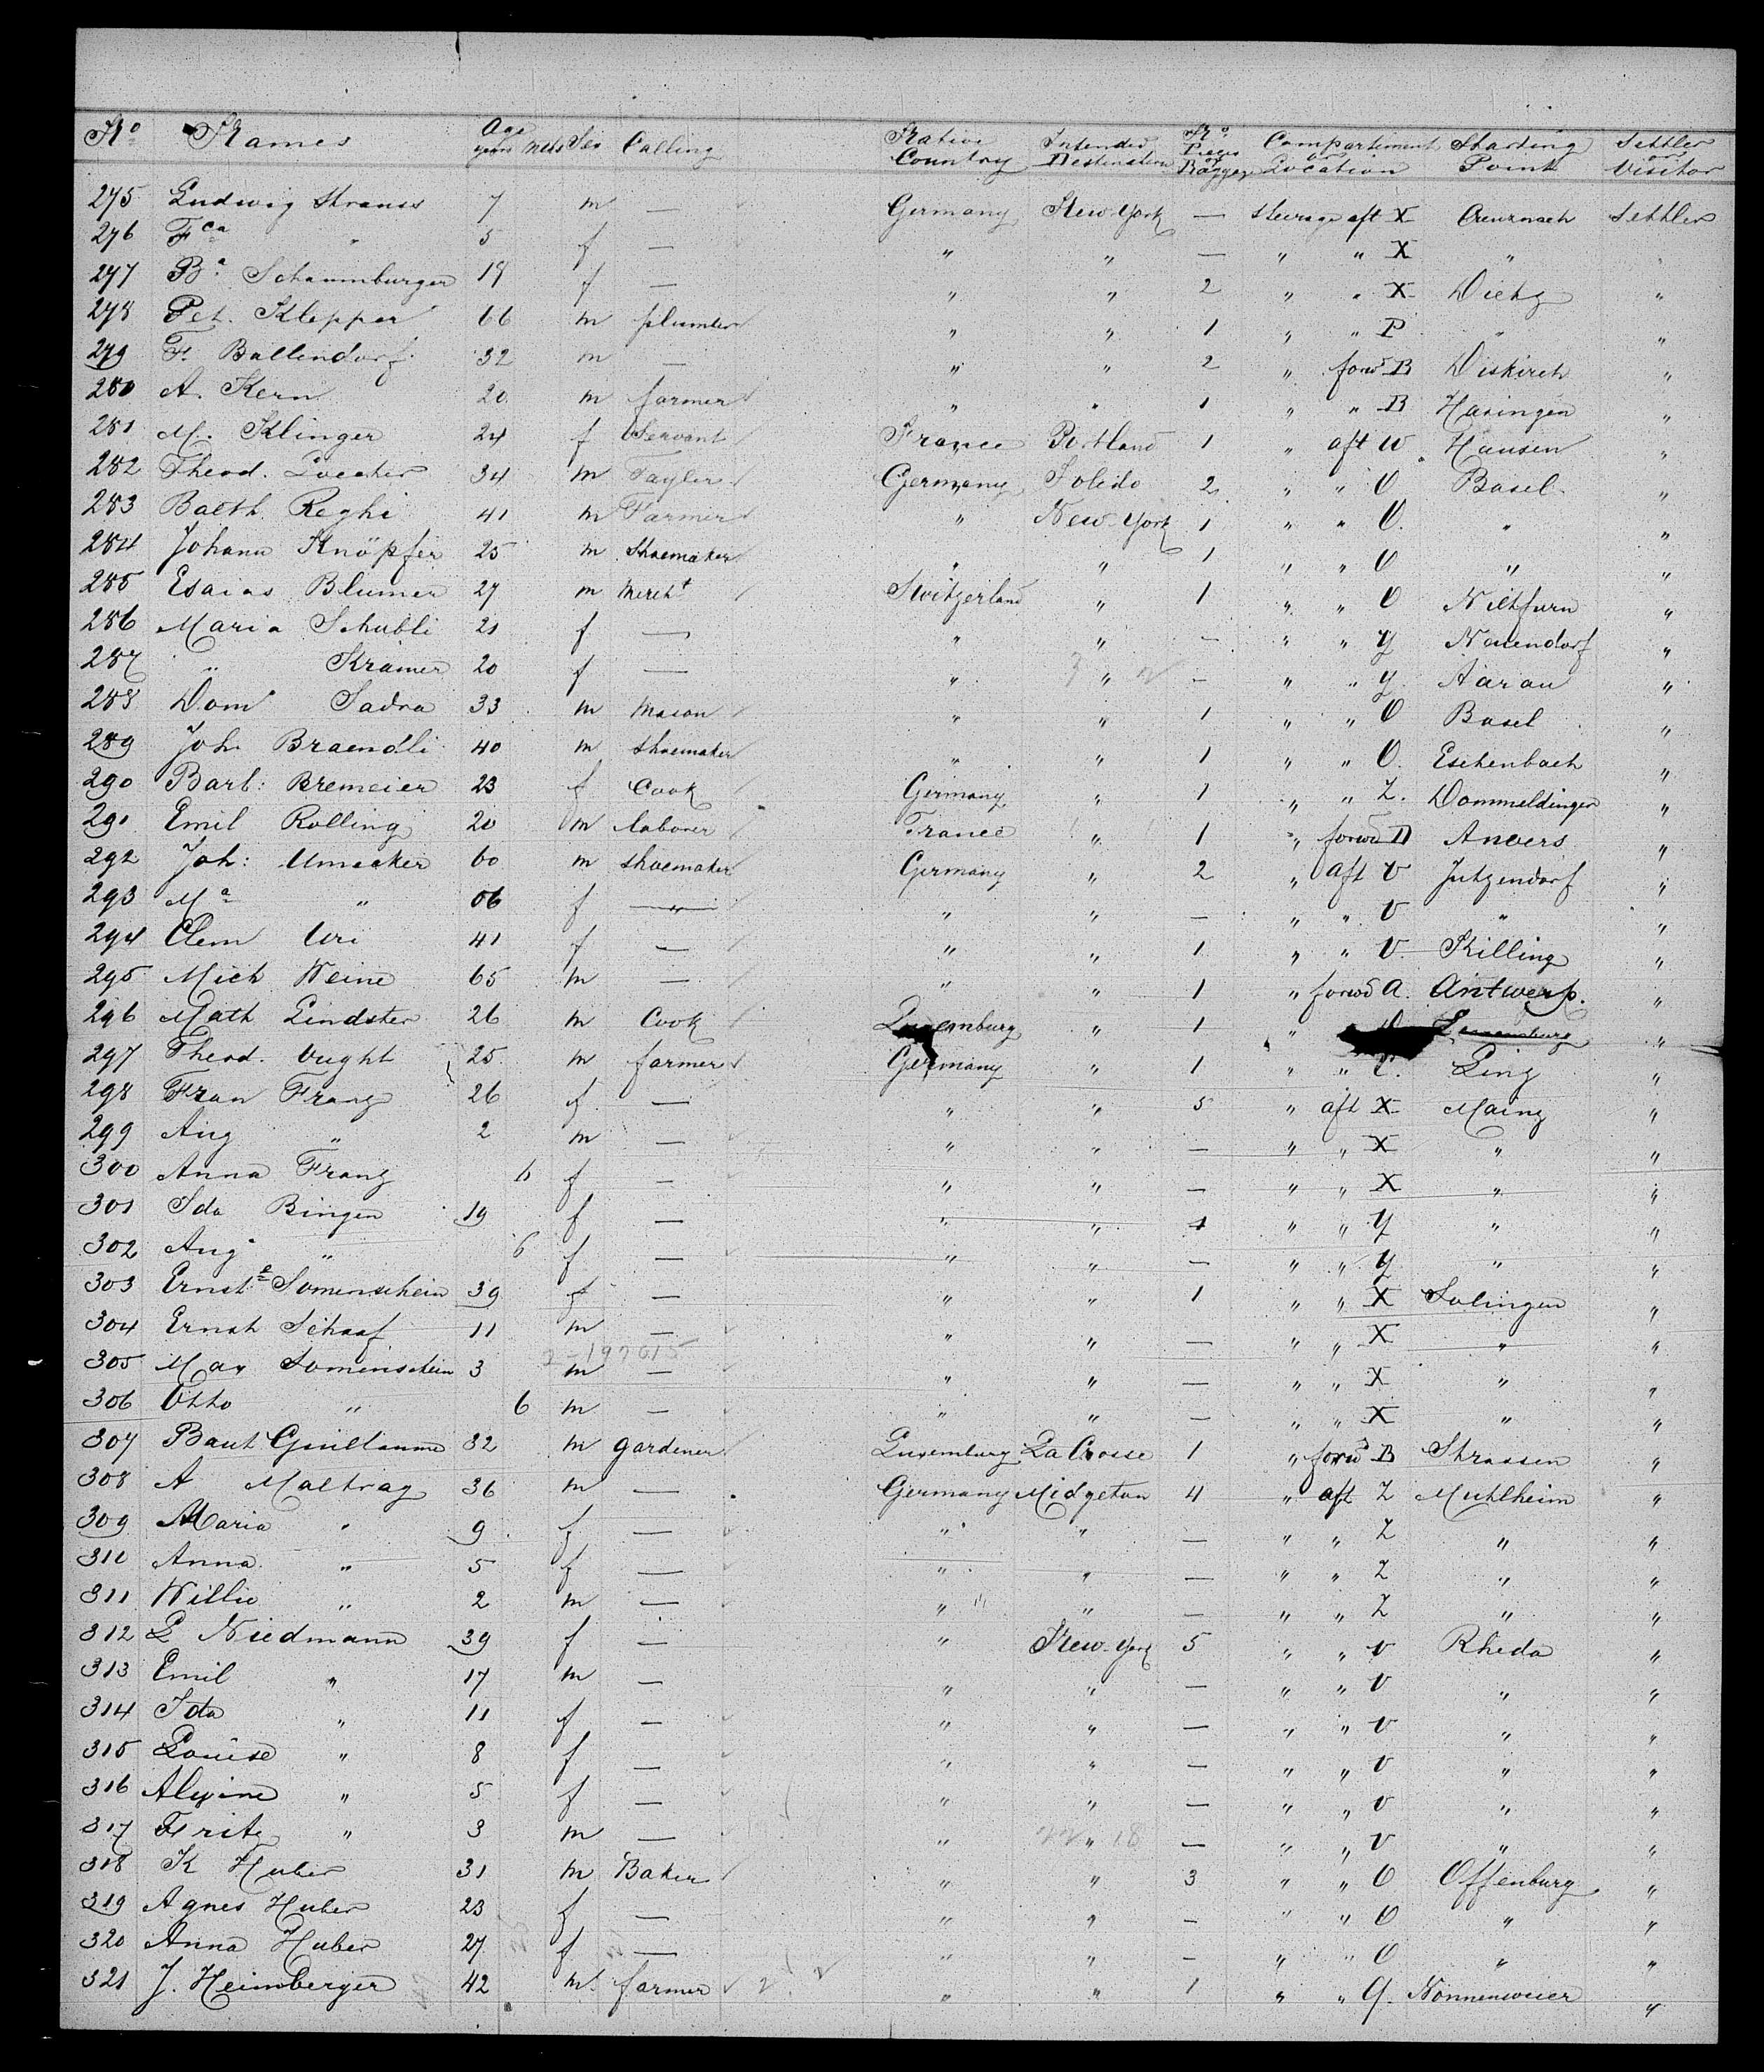 No Names Age years Mths Sex Calling Native Country Intended Destination No Pieces of Baggage Compartiment or Location Starting Point Settler or Visitor
275 Ludwig Strauss 7 m — Germany New-York — Steerage aft X Creuznach Settler
276 Fca " 5 f — " " — " " X " "
277 Ba Schaumburger 19 f — " " 2 " " X Dietz "
278 Pet. Klepper 66 m plumber " " 1 " " P " "
279 F. Ballendorf 32 m — " " 2 " forwd B Diskirch "
280 A. Kern 20 m farmer " " 1 " " B Hasingen "
281 M. Klinger 24 f Servant France Portland 1 " aft W Hausen "
282 Theod. 34 m Tayler Germany Toledo 2 " " O Basel "
283 Balth. Reghi 41 m Farmer " New-York 1 " " O " "
284 Johann Knöpfer 25 m Shoemaker " " 1 " " O " "
285 Esaias Blumer 27 m Mercht Switzerland " 1 " " O Niltfurn "
286 Maria Schubli 21 f — " " — " " Y Nauendorf "
287 " Kramer 20 f — " " — " " Y Aarau "
288 Dom Sadra 33 m Mason " " 1 " " O Basel "
289 Joh. Braendli 40 m Shoemaker " " 1 " " O Eschenbach "
290 Barb: Bremeier 23 f Cook Germany " 1 " " Z Dommeldingen "
291 Emil Rolling 20 m laborer France " 1 " forwd D Anvers "
292 Joh: Umacker 60 m shoemaker Germany " 2 " aft V Jutzendorf "
293 Ma " 56 f — " " " — " " V " "
294 Clem Uri 41 f — " " 1 " " V Killing "
295 Mich Weine 65 m — " " 1 " forwd A Antwerp. "
296 Math Lindster 26 m Cook Luxemburg " 1 " Luxemburg "
297 Theod. Vught 25 m farmer Germany " 1 " " C. Linz "
298 Fran Franz 26 f — " " 5 " aft X Mainz "
299 Aug " 2 m — " " — " " X " "
300 Anna Franz 6 f — " " — " " X " "
301 Ida Bingen 19 f — " " 1 " " Y " "
302 Aug " 6 f — " " — " " Y " "
303 Ernste Sonnenschein 39 f — " " 1 " " X Solingen "
304 Ernst Schaaf 11 m — " " — " " X " "
2-197615
305 Max Sonnenschein 3 m — " " — " " X " "
306 Otto " 6 m — " " — " " X " "
307 Baut Guillaume 32 m gardener Luxemburg La Crosse 1 " forwd B Strassen "
308 A Maltrag 36 m — Germany Midgetun 4 " aft Z Muhlheim "
309 Maria " 9 f — " " — " " Z " "
310 Anna " 5 f — " " — " " Z " "
311 Willie " 2 m — " " — " " Z " "
312 L Niedmann 39 f — " New-York 5 " " V Rheda "
313 Emil " 17 m — " " — " " V " "
314 Ida " 11 f — " " — " " V " "
315 Louise " 8 f — " " — " " V " "
316 Alwine " 5 f — " " — " " V " "
317 Fritz " 3 m — " " — " " V " "
318 K Huber 31 m Baker " " 3 " " O Offenburg "
319 Agnes Huber 23 f — " " — " " O " "
320 Anna Huber 27 f — " " — " " O " "
321 J. Heimberger 42 m farmer " " 1 " " Q. Nonnenweier "